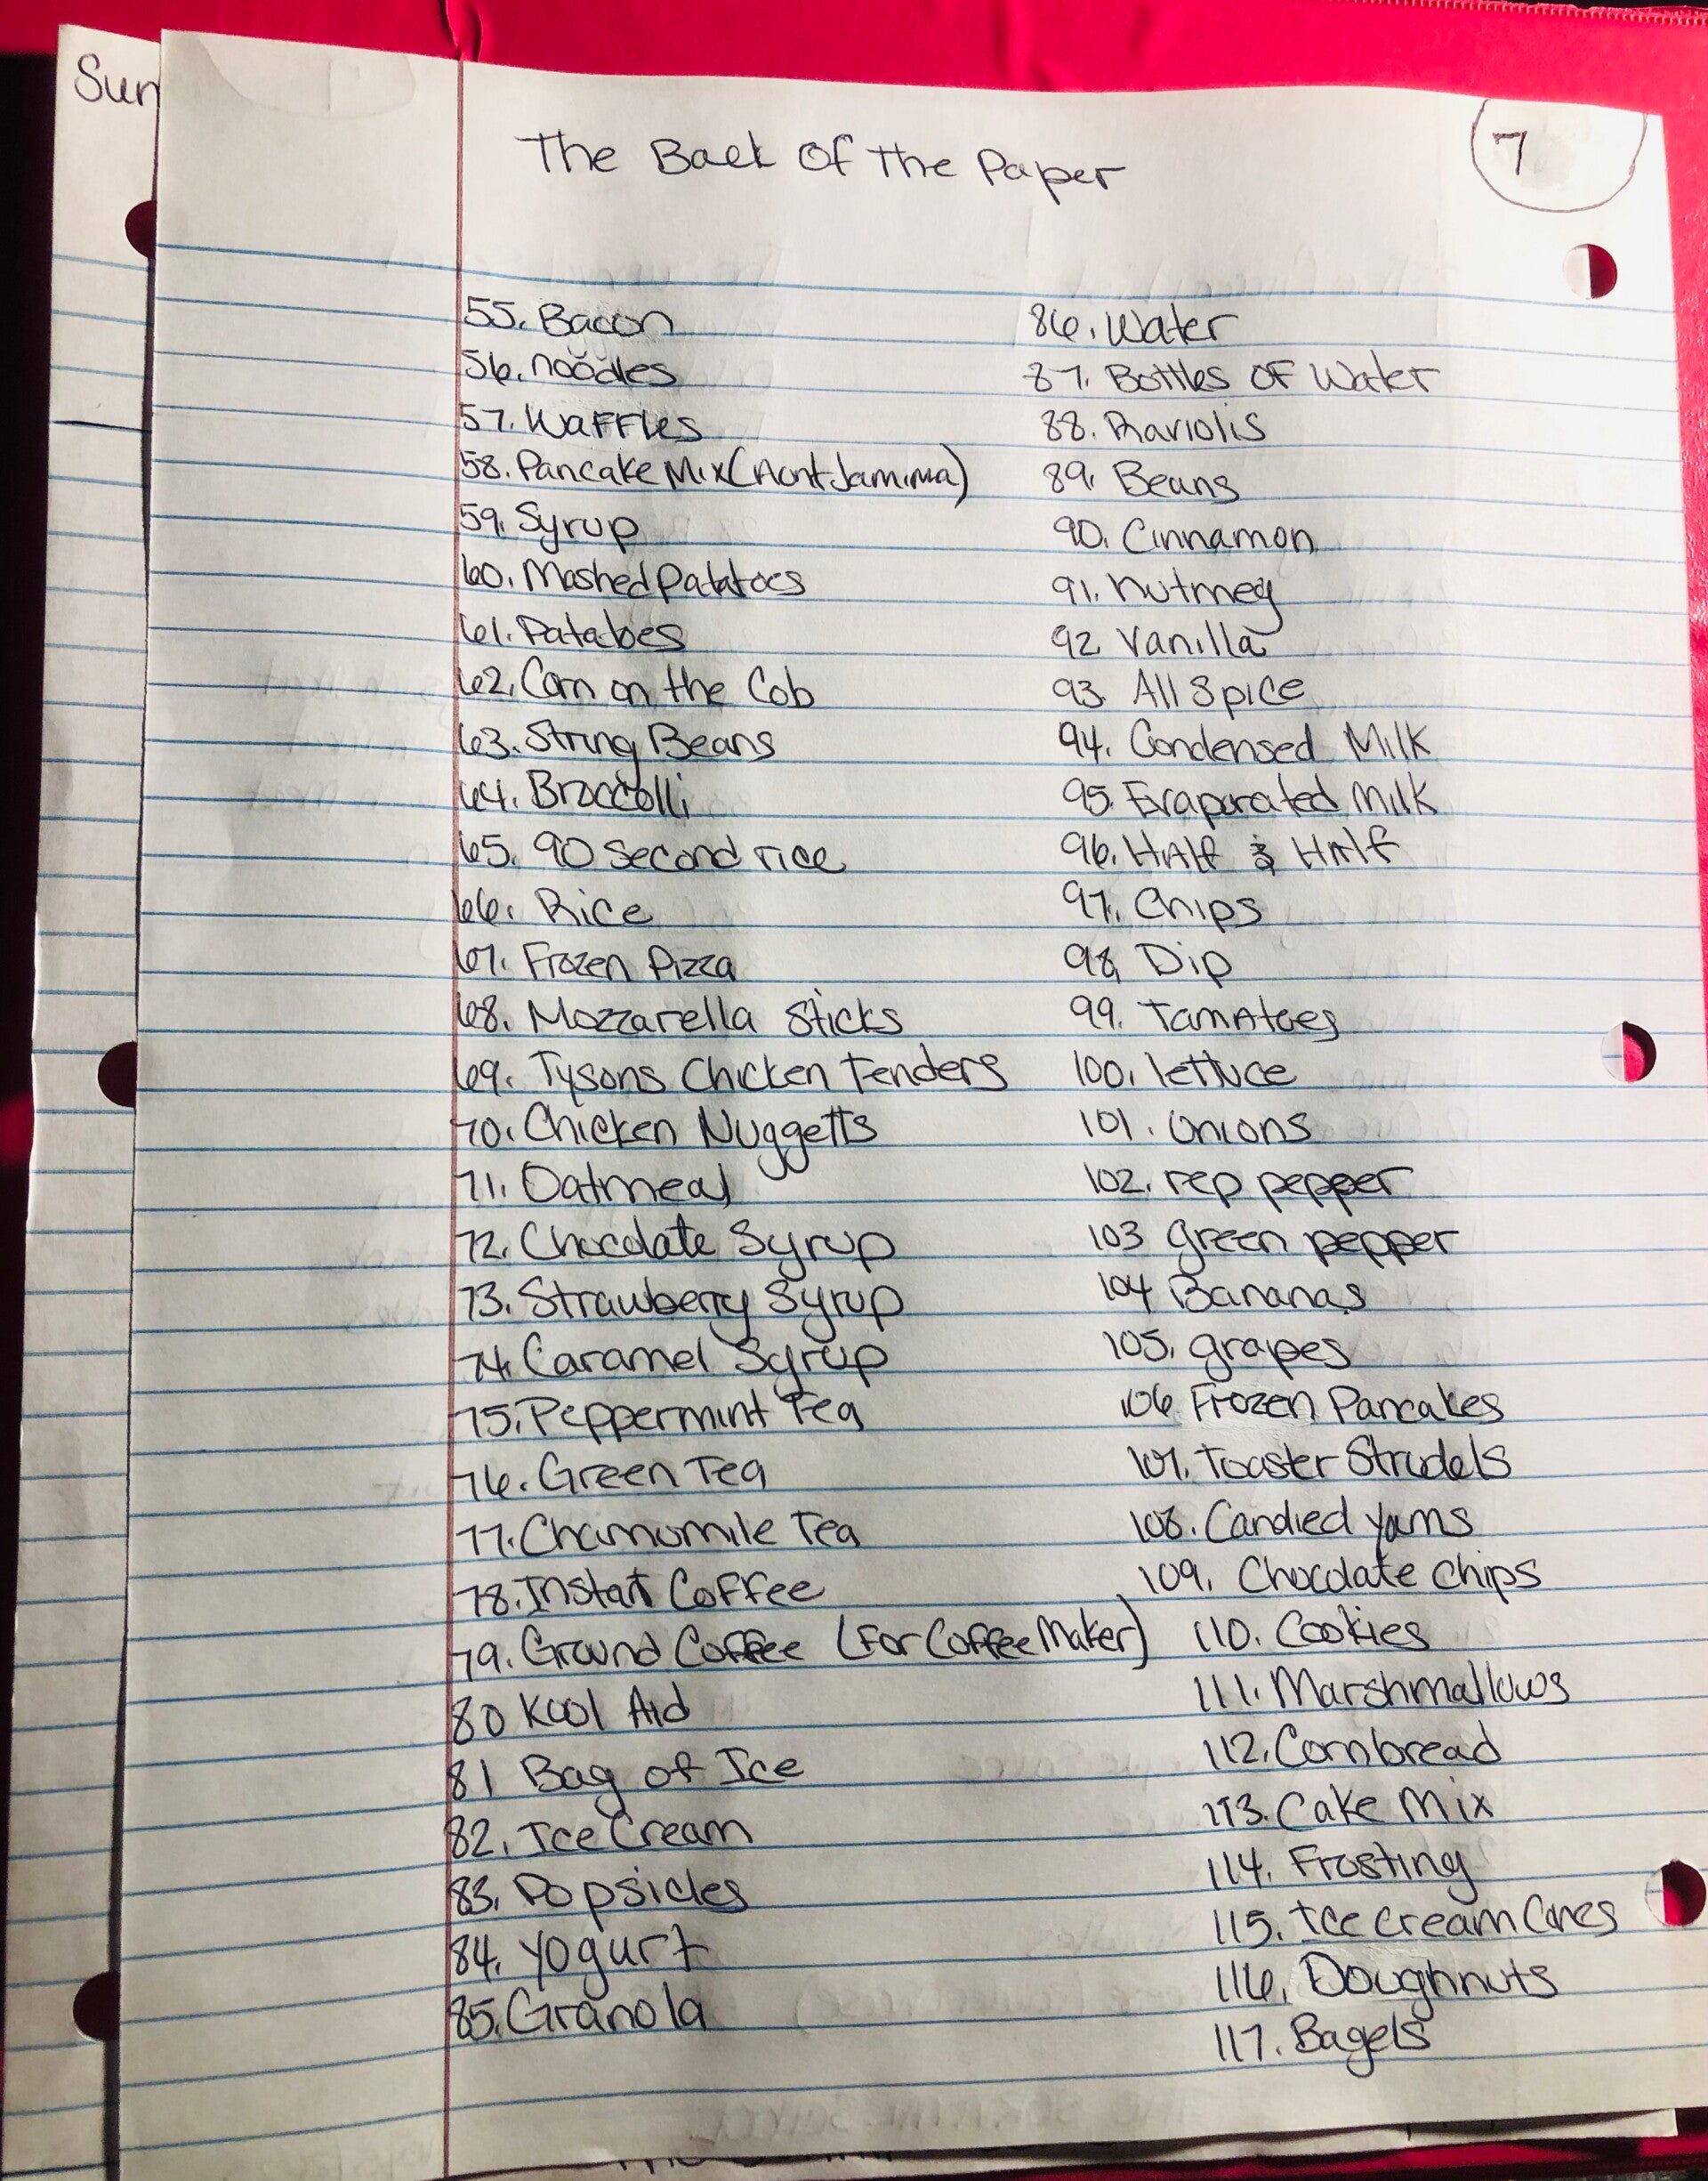 Sun
The Back Of The Paper
7
55. Bacon
56. noodles
57. Waffles
58. Pancake Mix (Aunt Jamima)
59. Syrup
60. Mashed Patatoes
61. Patatoes
62. Corn on the Cob
63. String Beans
64. Broccolli
65. 90 Second rice
66. Rice
67. Frozen Pizza
68. Mozzarella Sticks
69. Tysons Chicken Tenders
70. Chicken Nuggetts
71. Oatmeal
72. Chocolate Syrup
73. Strawberry Syrup
74. Caramel Syrup
75. Peppermint Tea
76. Green Tea
77. Chamomile Tea
78. Instant Coffee
79. Ground Coffee (For Coffee Maker)
80 Kool Aid
81 Bag of Ice
82. Ice Cream
83. Popsicles
84. Yogurt
85. Granola
86. Water
87. Bottles Of Water
88. Raviolis
89. Beans
90. Cinnamon
91. nutmeg
92 Vanilla
93. All Spice
94. Condensed Milk
95. Evaporated Milk
96. HAlf & HAlf
97. Chips
98. Dip
99. TomAtoes
100. lettuce
101. Onions
102. rep pepper
103 green pepper
104 Bananas
105. grapes
106 Frozen Pancakes
107. Toaster Strudels
108. Candied Yams
109. Chocolate Chips
110. Cookies
111. Marshmallows
112. Cornbread
113. Cake Mix
114. Frosting
115. Ice Cream Cones
116. Doughnuts
117. Bagels